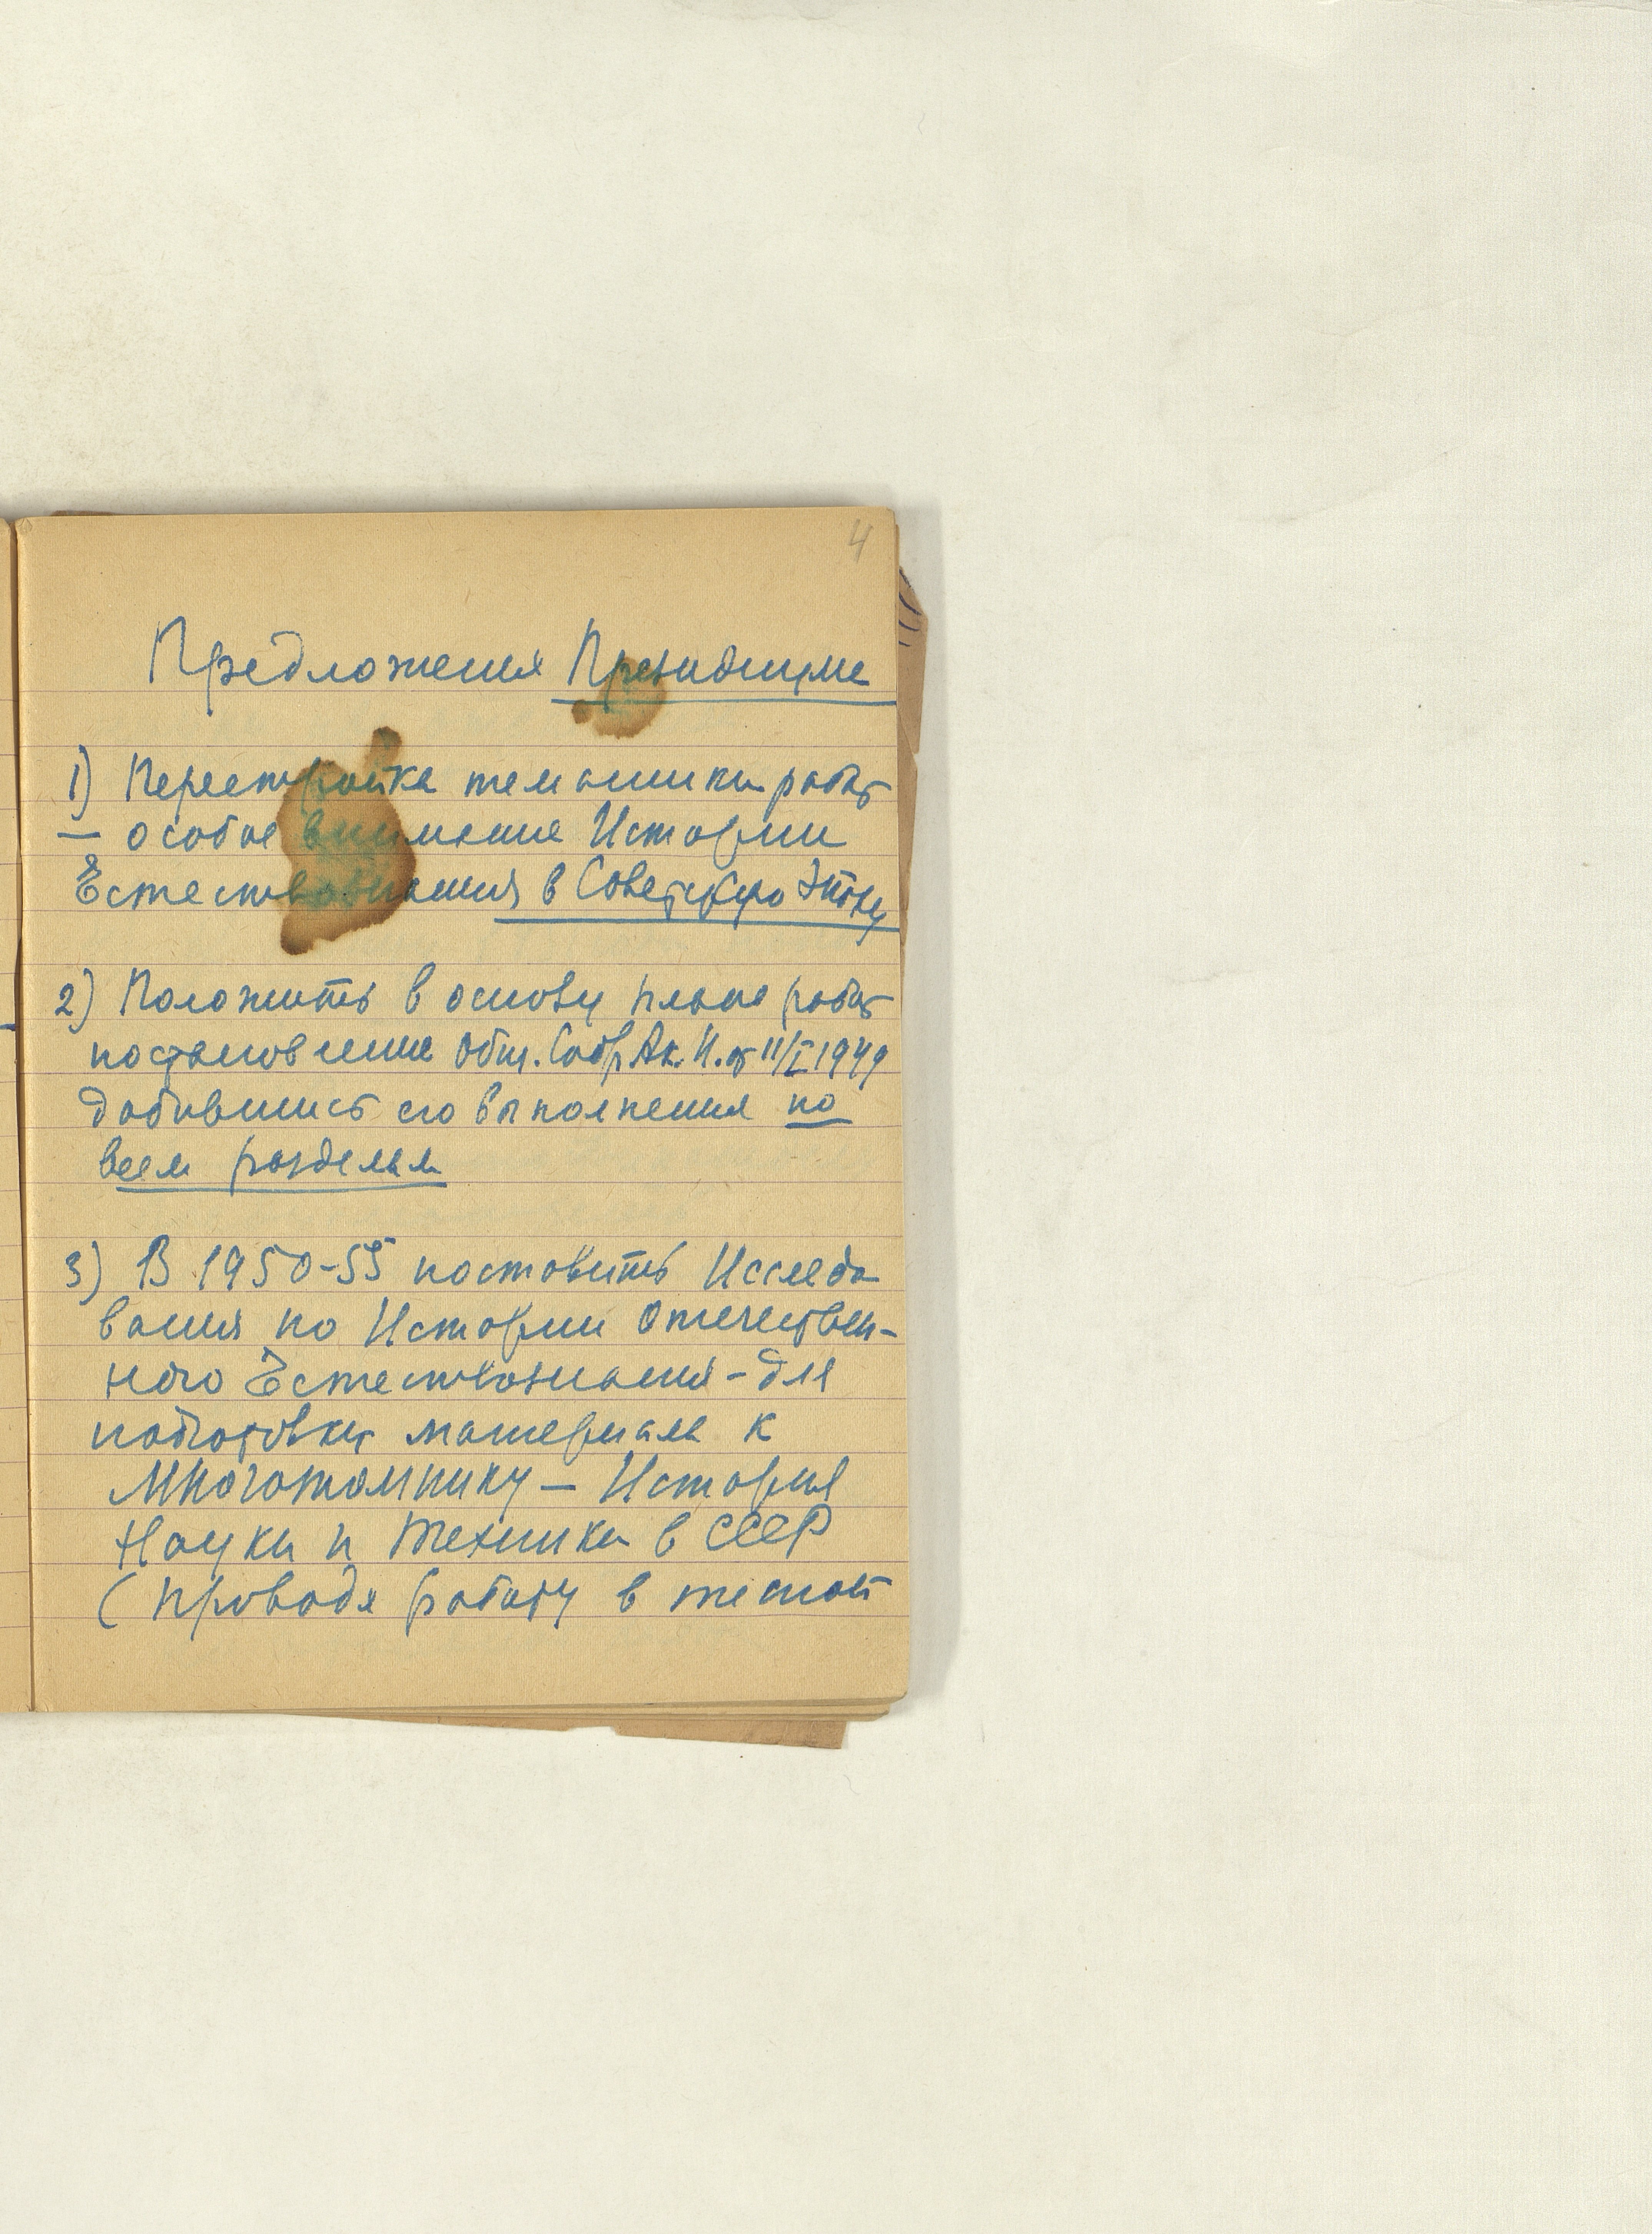 4
Предложения Президиума
1) Перестройка тематики работ
— особое внимание Истории
Естествознания в Советскую Эпоху
2) Положить в основу плана работ
постановление Общ. Собр. Ак. Н. от 11/I 1949
добившись его выполнения по
всем разделам
3) В 1950-55 поставить Исследо
вания по Истории Отечествен-
ного Естествознания - для
подготовки материала к
Многотомнику — История
Науки и Техники в СССР
(проводя работу в тесной